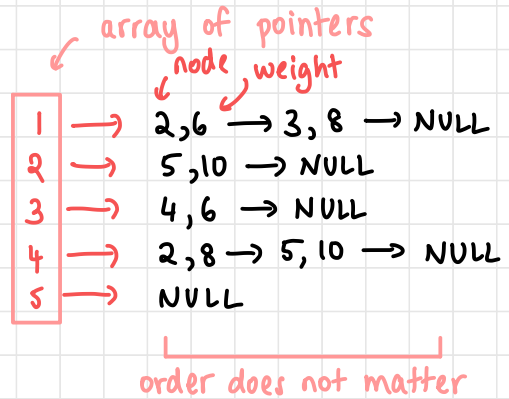 array of pointers
node weight
1 → 2,6 → 3,8 → NULL
2 → 5,10 → NULL
3 → 4,6 → NULL
4 → 2,8 → 5,10 → NULL
5 → NULL
order does not matter